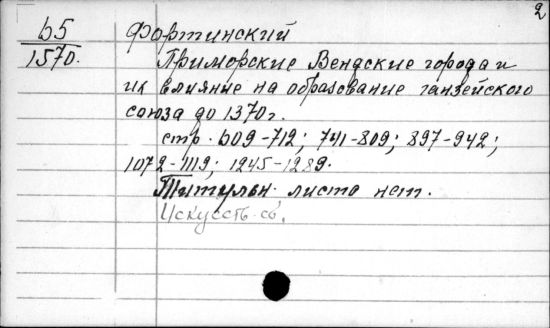 2
б5
1570.
Фортинский
Приморские Вендские города и
их влияние на образование ганзейского
союза до 1370 г.
стр. 609-712; 741-809; 897-942;
1072-1119; 1245-1289.
Титульн. листа нет.